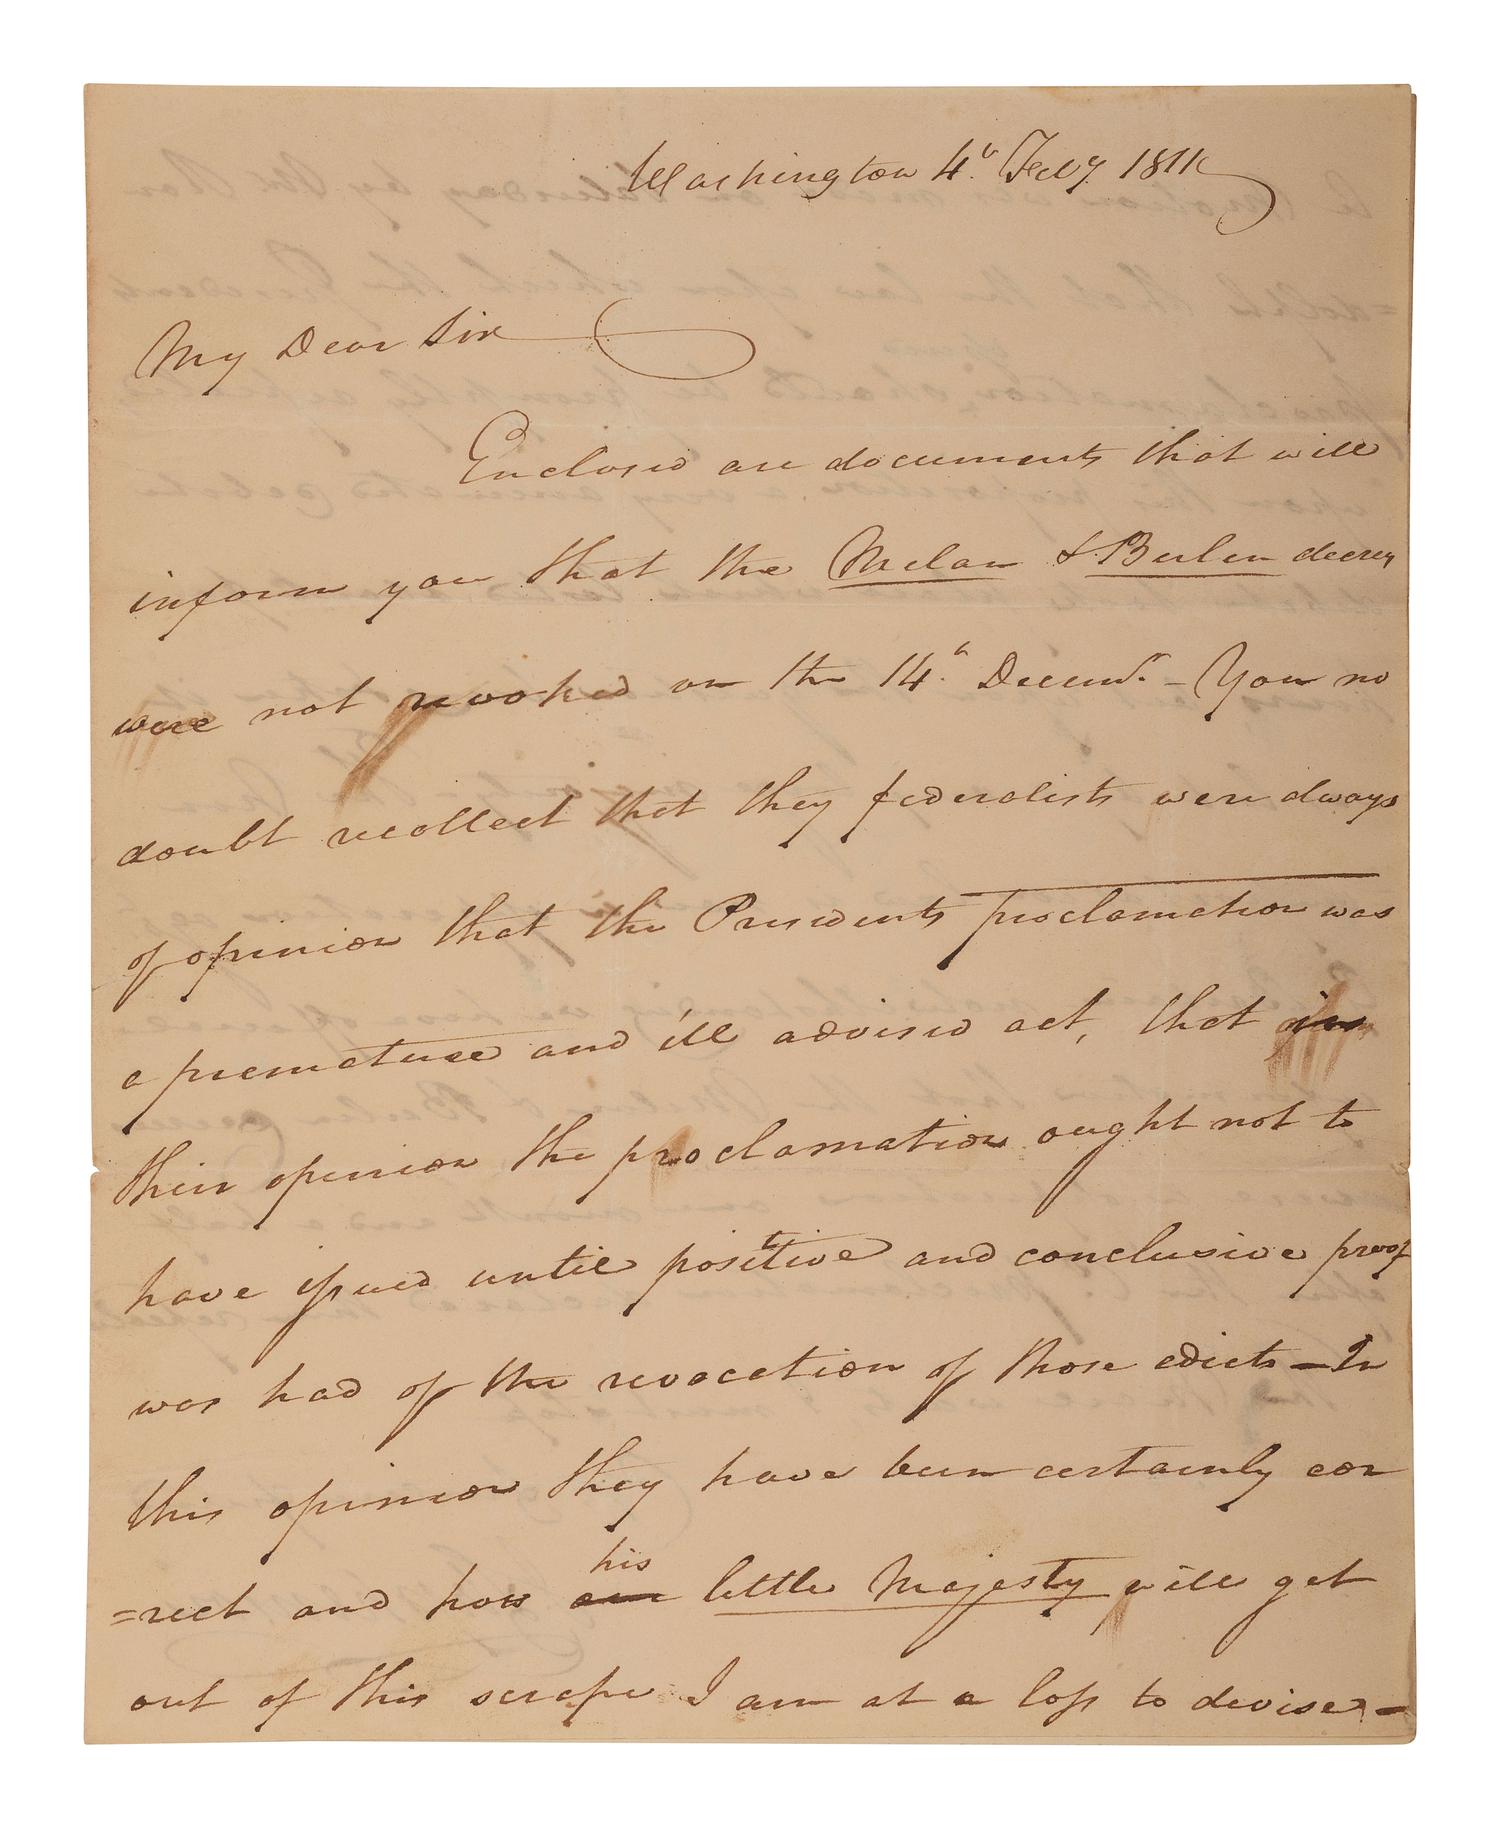 Washington 4th Feby 1811
My Dear Sir
Enclosed are documents that will
inform you that the Melan & Berlen decrees
were not revoked on the 14th Decemr. - You no
doubt recollect that they federalists were always
of opinion that the Presidents proclamation was
a premature and ill advised act, that in
their opinion the proclamation ought not to
have issued until positive and conclusive proof
was had of the revocation of those edicts - In
this opinion they have been certainly cor
=rect and how his
little Majesty will get
out of this scrape I am at a loss to devise -